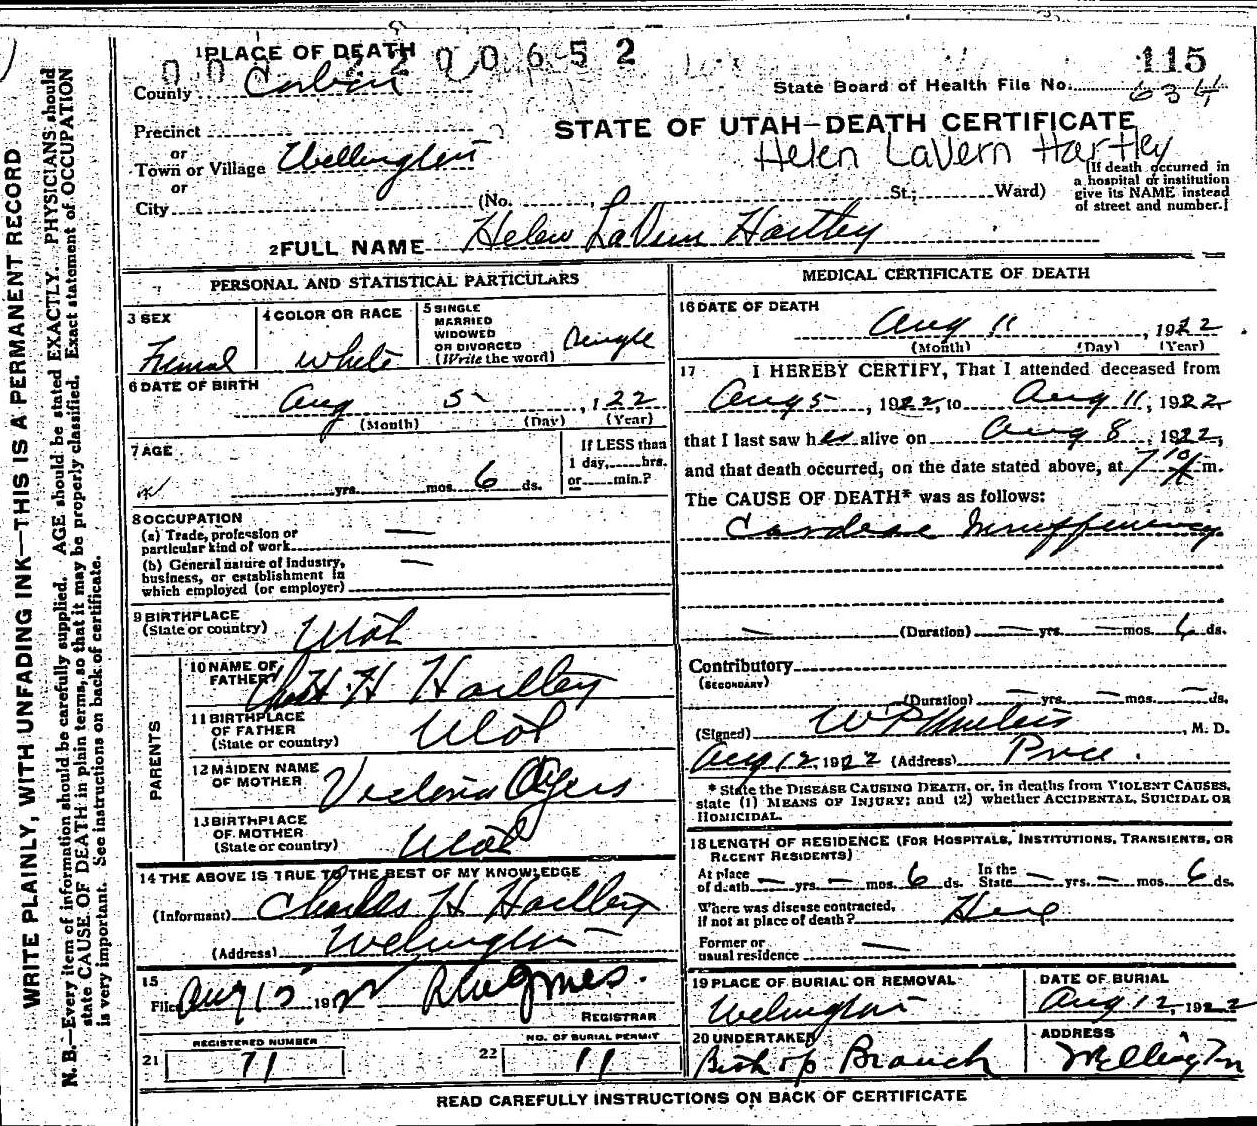 1 PLACE OF DEATH
0 0 2 2 0 0 6 5 2
115
County Carbon
State Board of Health File No. 634
Precinct
STATE OF UTAH—DEATH CERTIFICATE
or
Helen LaVern Hartley
Town or Village Wellington
or
City (No. , St.; Ward)
(If death occurred in
a hospital or institution
give its NAME instead
of street and number.)
2 FULL NAME Helen LaVern Hartley
PERSONAL AND STATISTICAL PARTICULARS
3 SEX
Femal
4 COLOR OR RACE
White
5 SINGLE
MARRIED
WIDOWED
OR DIVORCED
(Write the word)
Single
6 DATE OF BIRTH
Aug 5 , 1 22
(Month) (Day) (Year)
7 AGE
yrs. mos. 6 ds.
If LESS than
1 day, hrs.
or min.?
8 OCCUPATION
(a) Trade, profession or
particular kind of work —
(b) General nature of Industry,
business, or establishment in
which employed (or employer) —
9 BIRTHPLACE
(State or country) Utah
PARENTS
10 NAME OF
FATHER Chas H. Hartley
11 BIRTHPLACE
OF FATHER
(State or country) Utah
12 MAIDEN NAME
OF MOTHER Victoria
13 BIRTHPLACE
OF MOTHER
(State or country) Utah
14 THE ABOVE IS TRUE TO THE BEST OF MY KNOWLEDGE
(Informant) Charles H Hartley
(Address) Welington
15
Filed Aug 15 1922
REGISTRAR
21 REGISTERED NUMBER
71
22 NO. OF BURIAL PERMIT
11
MEDICAL CERTIFICATE OF DEATH
16 DATE OF DEATH
Aug 11 , 1922
(Month) (Day) (Year)
17 I HEREBY CERTIFY, That I attended deceased from
Aug 5 , 1922, to Aug 11, 1922
that I last saw her alive on Aug 8 , 1922,
and that death occurred, on the date stated above, at 7 10 m.
The CAUSE OF DEATH* was as follows:
Cardiac Insufficiency
— (Duration) — yrs. — mos. 6 ds.
Contributory
(SECONDARY)
(Duration) — yrs. — mos. — ds.
(Signed) , M. D.
Aug 12, 1922 (Address) Price.
* State the DISEASE CAUSING DEATH, or, in deaths from VIOLENT CAUSES,
state (1) MEANS OF INJURY; and (2) whether ACCIDENTAL, SUICIDAL OR
HOMICIDAL.
18 LENGTH OF RESIDENCE (FOR HOSPITALS, INSTITUTIONS, TRANSIENTS, OR
RECENT RESIDENTS)
At place In the
of death — yrs. — mos. 6 ds. State — yrs. — mos. 6 ds.
Where was disease contracted,
if not at place of death? Here
Former or
usual residence —
19 PLACE OF BURIAL OR REMOVAL
Welington
DATE OF BURIAL
Aug 12, 1922
20 UNDERTAKER
Bishop Branch
ADDRESS
Wellington
READ CAREFULLY INSTRUCTIONS ON BACK OF CERTIFICATE
WRITE PLAINLY, WITH UNFADING INK—THIS IS A PERMANENT RECORD
N. B.—Every item of information should be carefully supplied. AGE should be stated EXACTLY. PHYSICIANS should
state CAUSE OF DEATH in plain terms, so that it may be properly classified. Exact statement of OCCUPATION
is very important. See instructions on back of certificate.